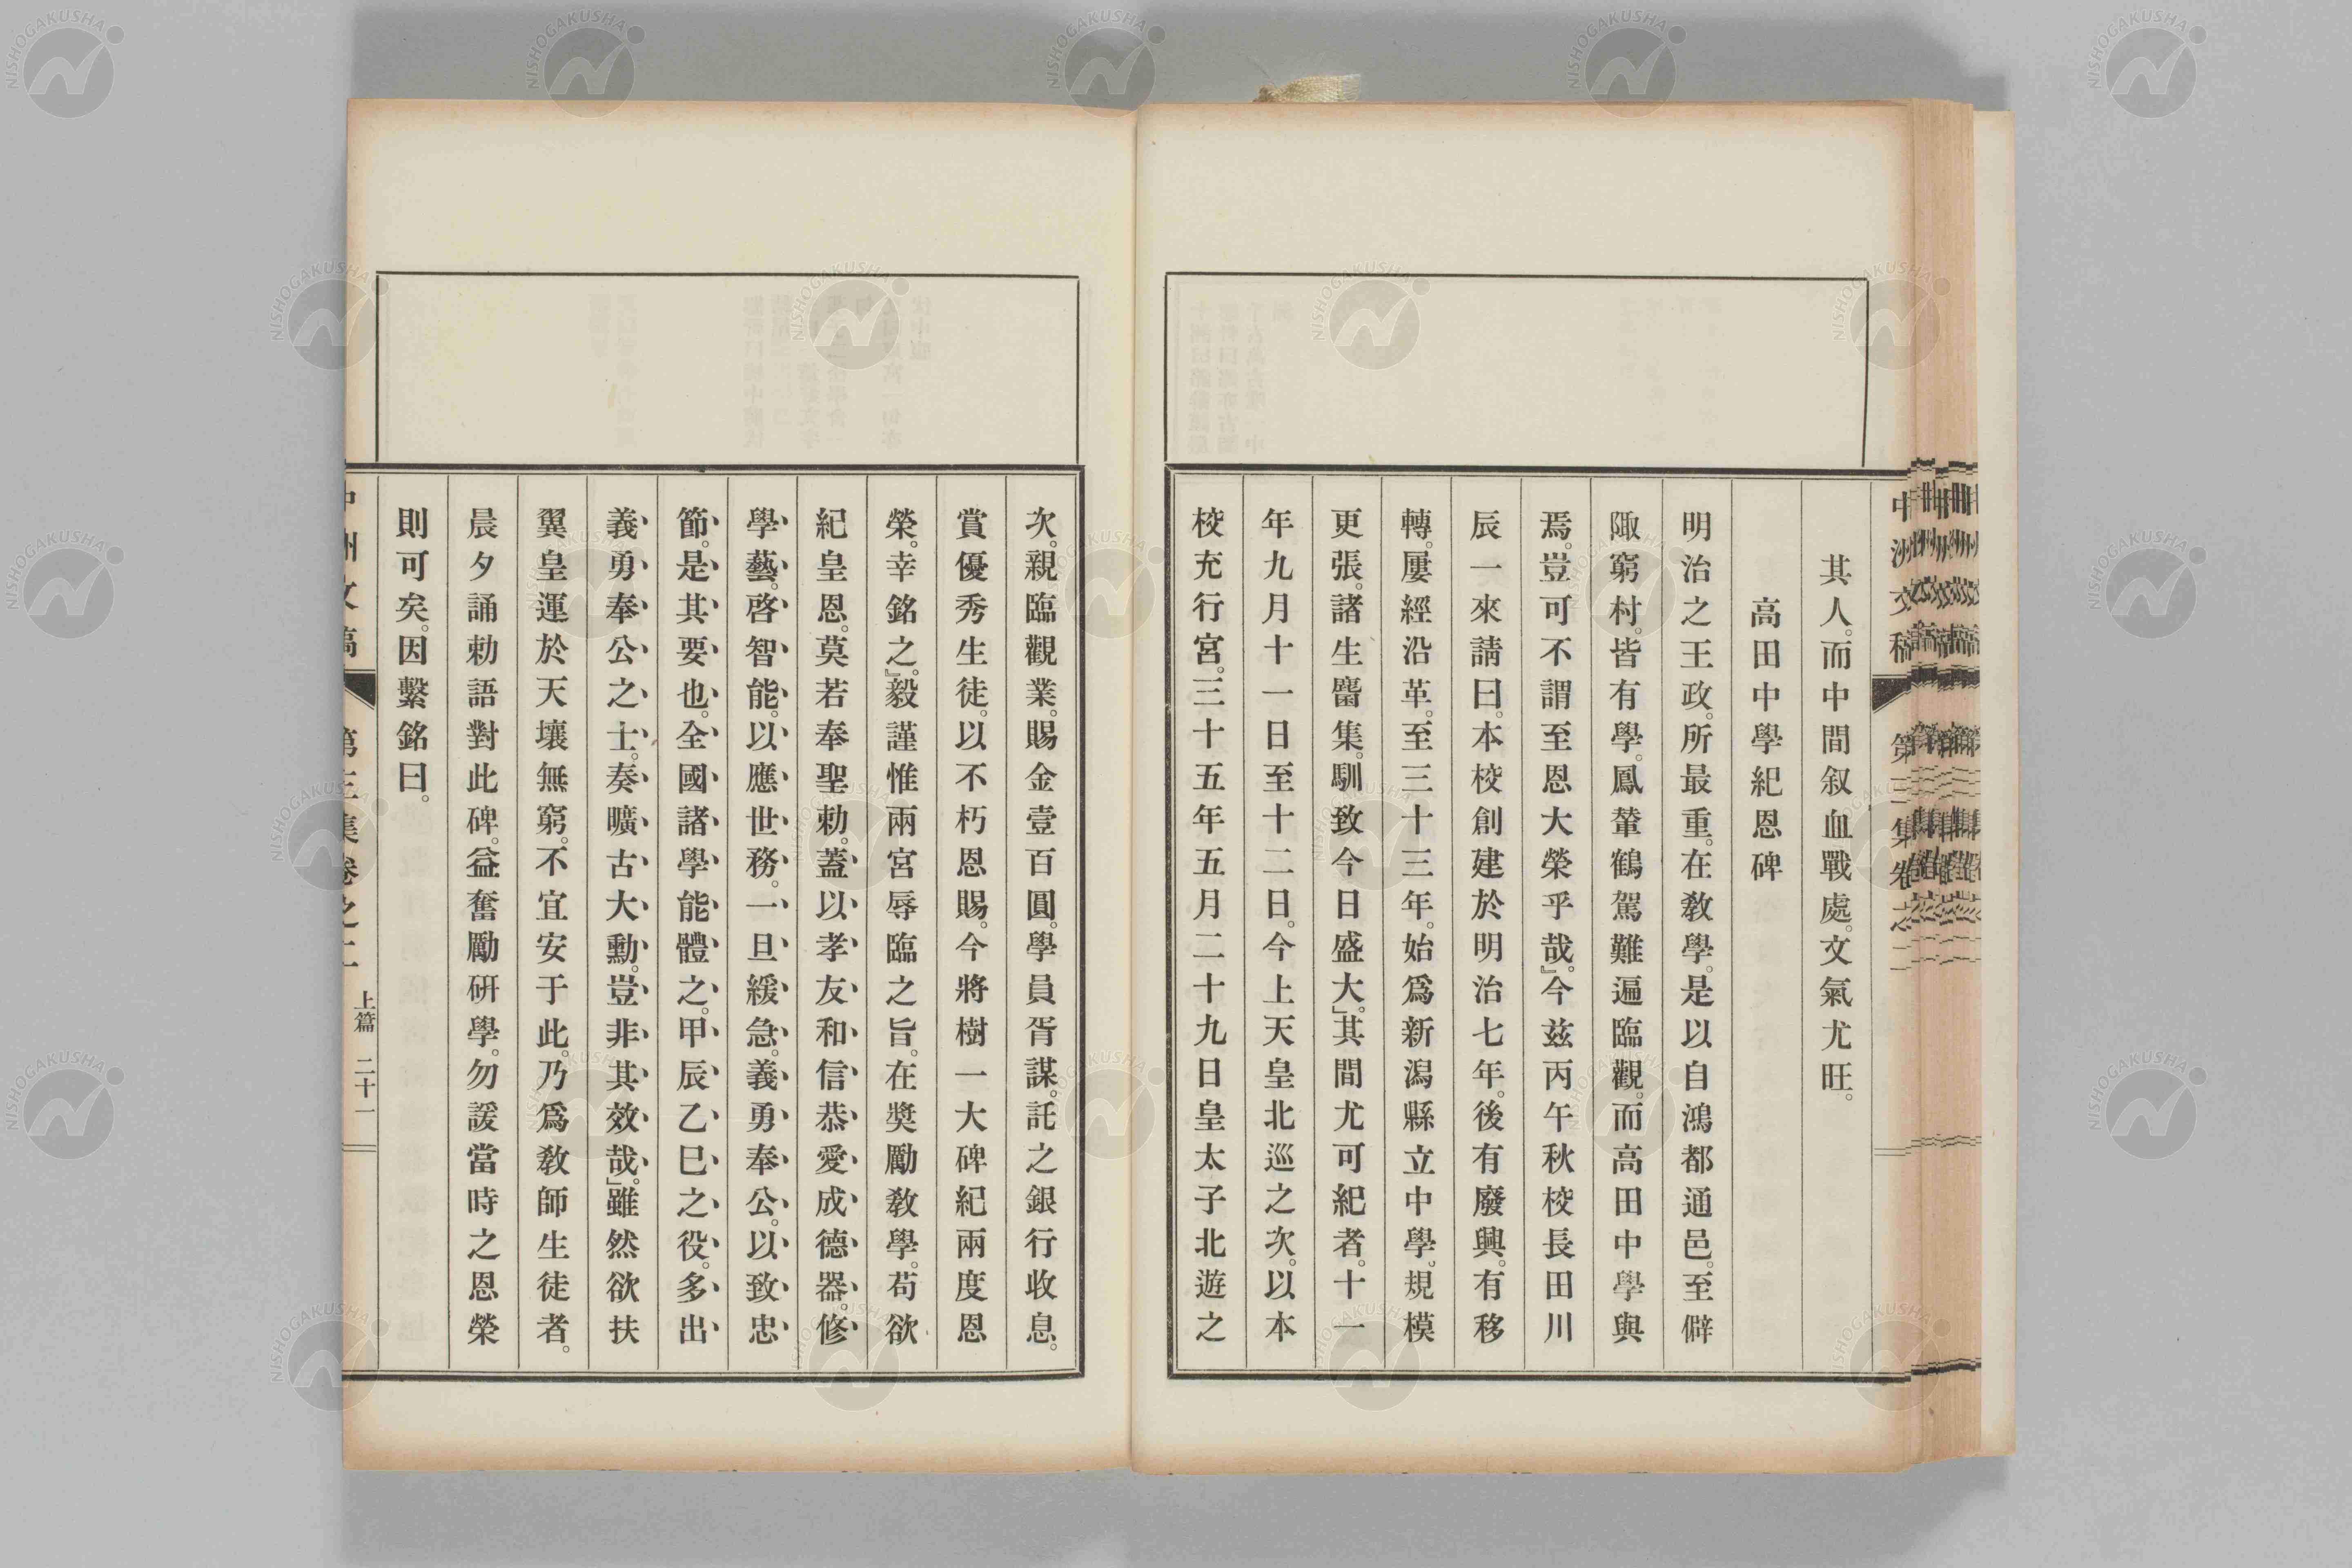 其人。而中間叙血戰處。文氣尤旺。
高田中學紀恩碑
明治之王政。所最重。在教學。是以自鴻都通邑。至僻
陬窮村。皆有學。鳳輦鶴駕難遍臨觀。而高田中學與
焉。豈可不謂至恩大榮乎哉。』今玆丙午秋校長田川
辰一來請曰。本校創建於明治七年。後有廢興。有移
轉。屢經沿革。至三十三年。始爲新潟縣立中學。規模
更張。諸生麕集。馴致今日盛大。』其間尤可紀者。十一
年九月十一日至十二日。今上天皇北巡之次。以本
校充行宮。三十五年五月二十九日皇太子北遊之
次。親臨觀業。賜金壹百圓。學員胥謀。託之銀行收息。
賞優秀生徒。以不朽恩賜。今將樹一大碑紀兩度恩
榮。幸銘之。』毅謹惟兩宮辱臨之旨。在奬勵教學。苟欲
紀皇恩。莫若奉聖勅。蓋以孝友和信恭愛成德器。修
學藝。啓智能。以應世務。一旦緩急。義勇奉公。以致忠
節。是其要也。全國諸學能體之。甲辰乙巳之役。多出
義勇奉公之士。奏曠古大勳。豈非其效哉。』雖然欲扶
翼皇運於天壤無窮。不宜安于此。乃爲教師生徒者。
晨夕誦勅語對此碑。益奮勵研學。勿諼當時之恩榮
則可矣。因繫銘曰。
中洲文稿 第三集卷之二 上篇 二十一
NISHOGAKUSHA